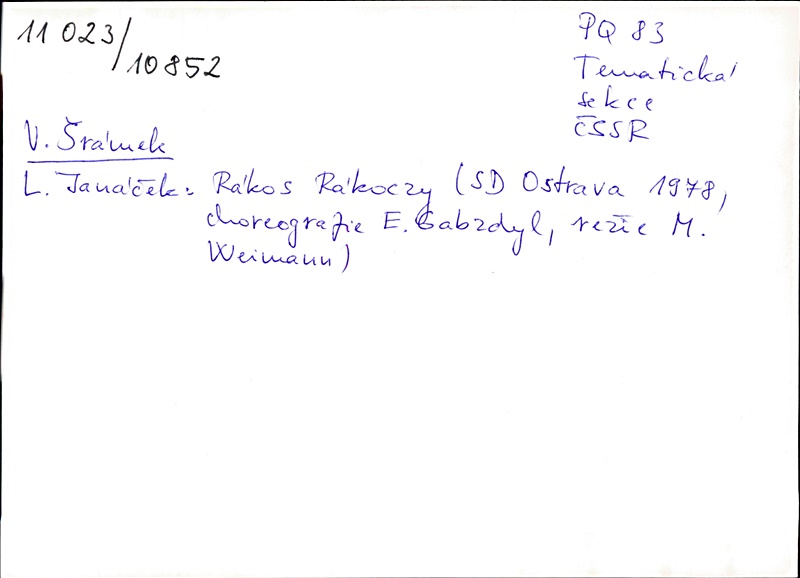 11 023/10852
PQ 83
Tematická
sekce
ČSSR
V. Šrámek
L. Janáček: Rákos Rákoczy (SD Ostrava 1978,
choreografie E. Gabzdyl, režie M.
Weimann)